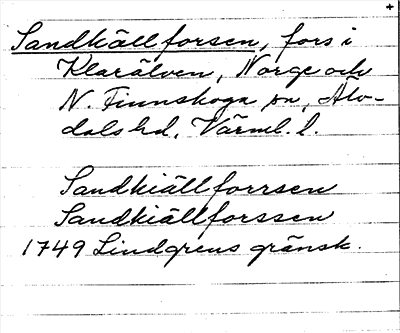 +
Sandkällforsen, fors i
Klarälven, Norge och
N. Finnskoga sn, Älv-
dals hd, Värml. l.
Sandkiällforrsen
Sandkiällforssen
1749 Lindgrens gränsk.